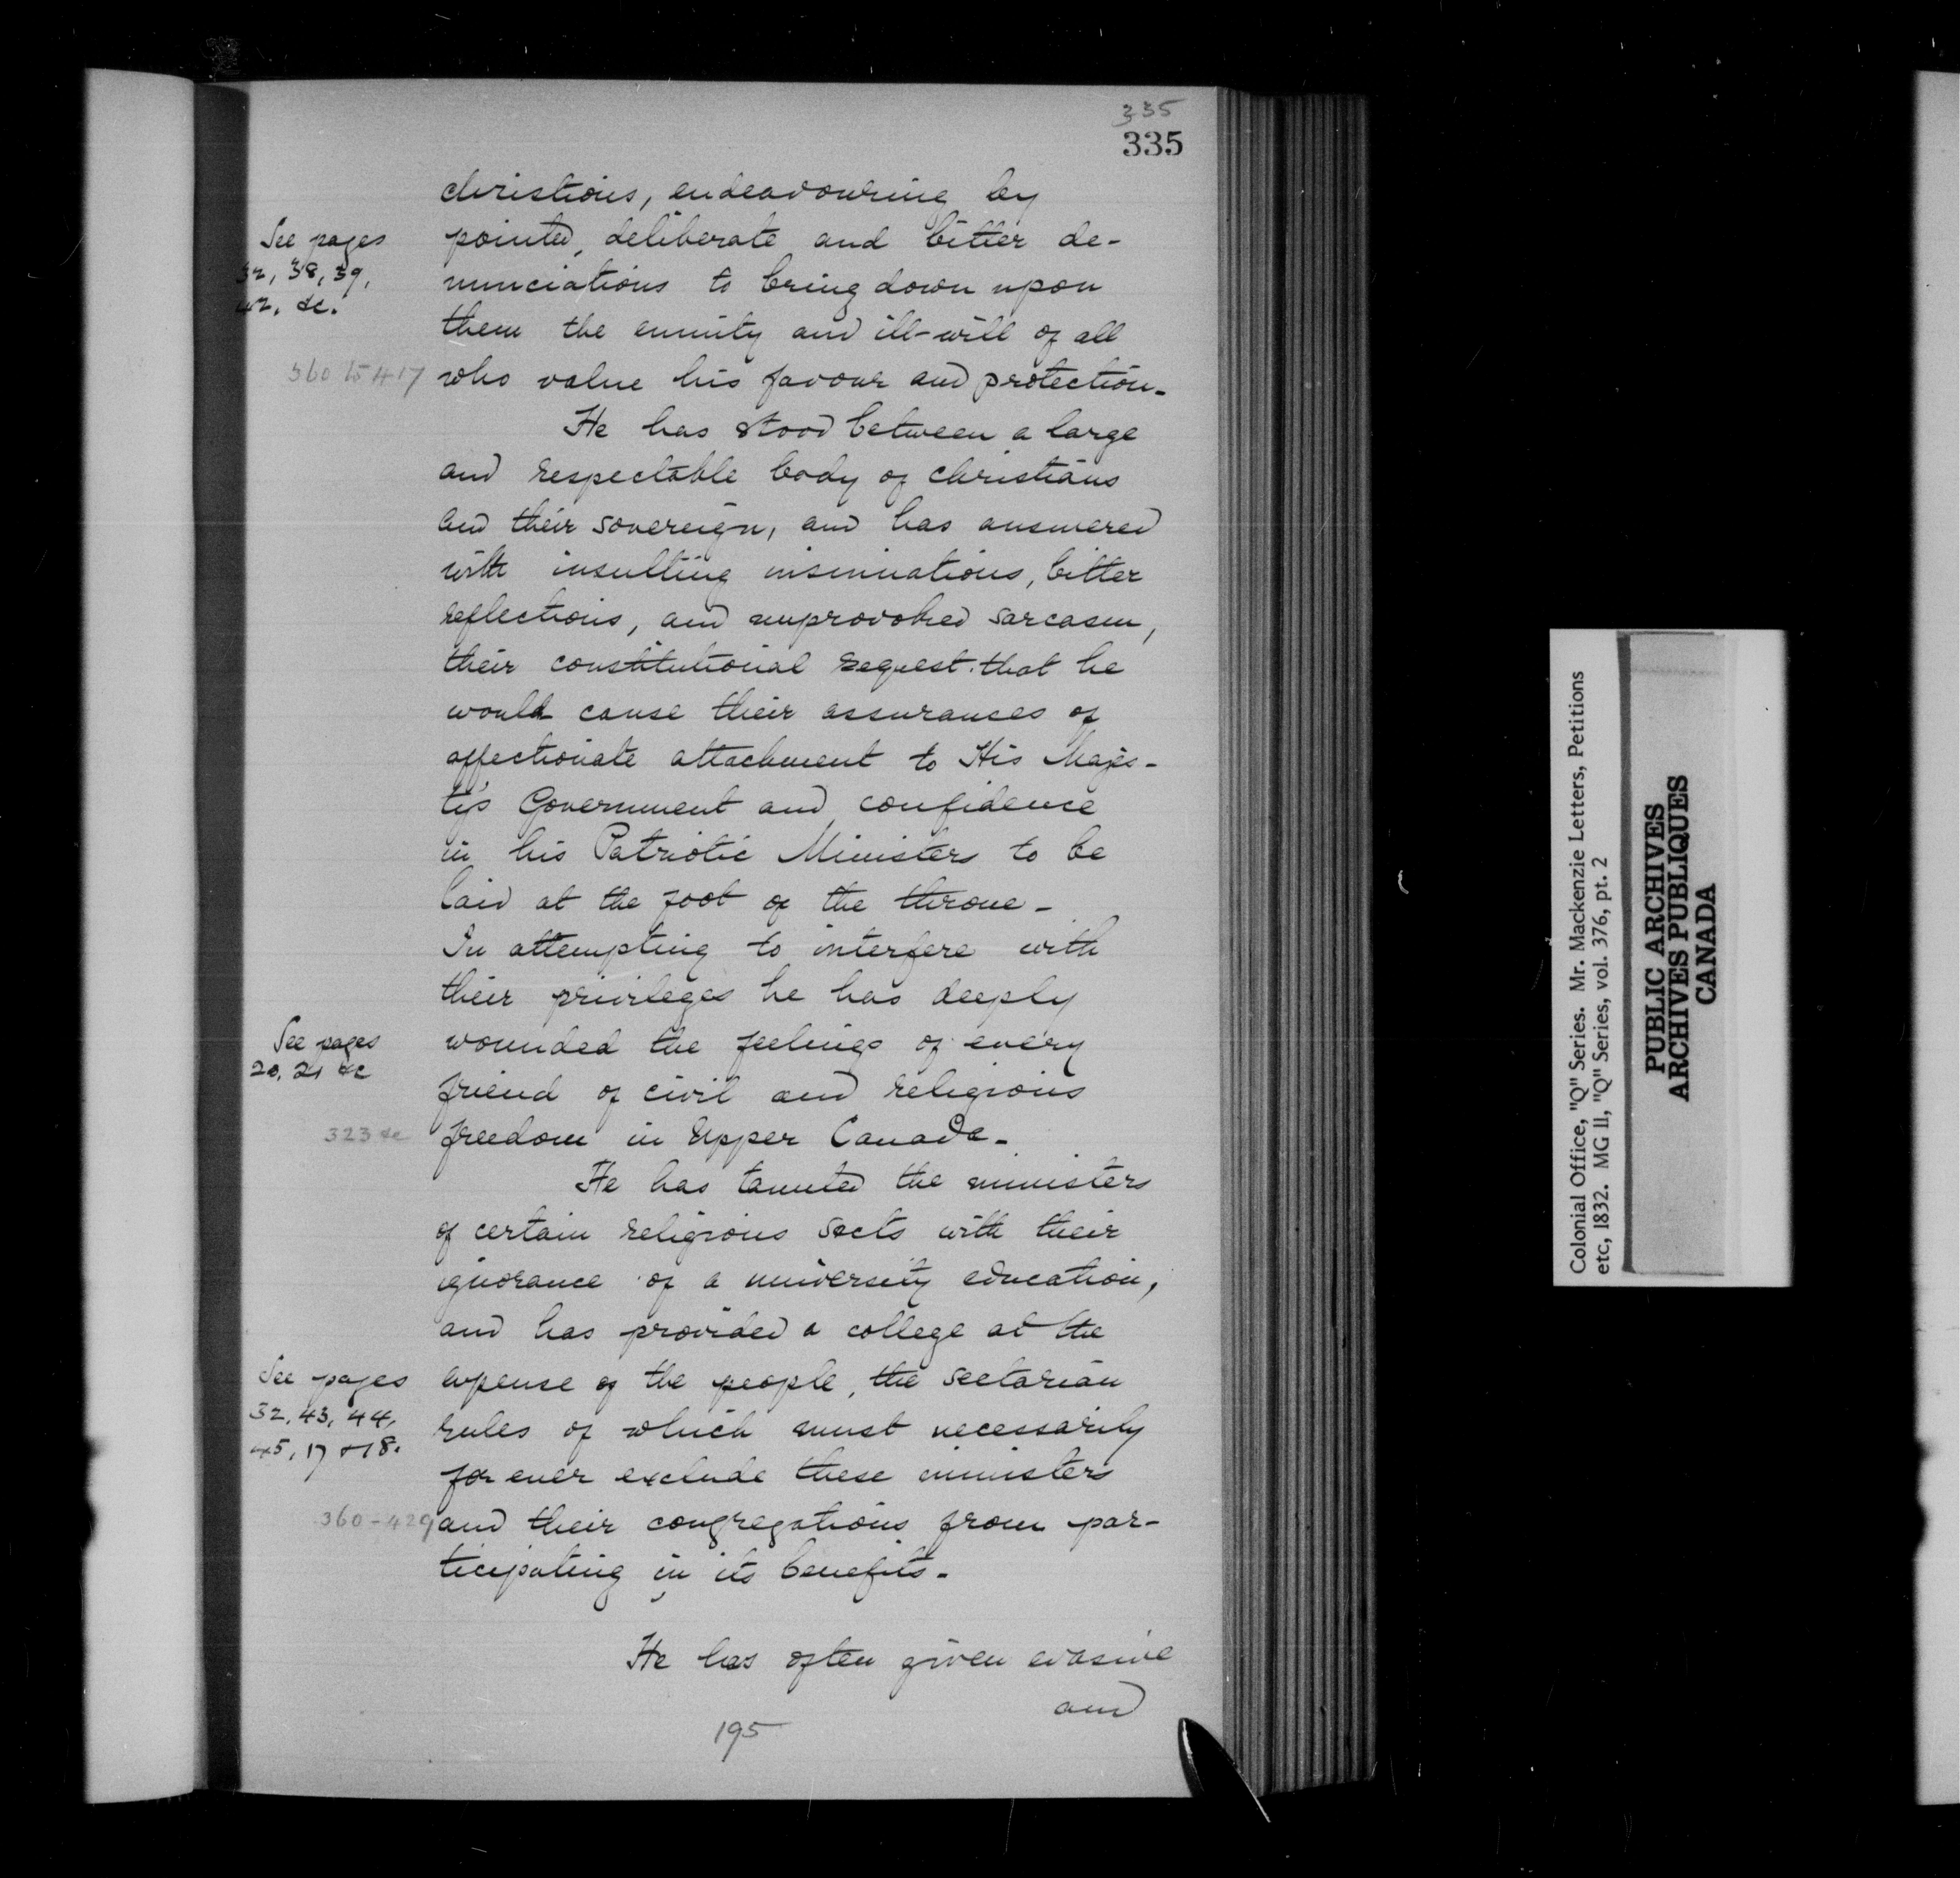 335
335
christians, endeavouring by
See pages
32, 38, 39,
42, &c.
pointed, deliberate and bitter de-
nunciations to bring down upon
them the enmity and ill-will of all
360 to 417
who value his favour and protection-
He has stood between a large
and respectable body of christians
and their sovereign, and has answered
with insulting insinuations, bitter
reflections, and unprovoked sarcasm,
their constitutional request that he
would cause their assurances of
affectionate attachment to His Majes-
ty's Government and confidence
in his Patriotic Ministers to be
laid at the foot of the throne-
In attempting to interfere with
their privileges he has deeply
See pages
20, 21 &c
wounded the feelings of every
friend of civil and religious
323 &c
freedom in Upper Canada-
He has taunted the ministers
of certain religious sects with their
ignorance of a university education,
and has provided a college at the
See pages
32, 43, 44,
45, 17 & 18.
expense of the people, the sectarian
rules of which must necessarily
for ever exclude these ministers
360-429
and their congregations from par-
ticipating in its benefits-
He has often given evasive
and
195
Colonial Office, "Q" Series. Mr. Mackenzie Letters, Petitions
etc, 1832. MG 11, "Q" Series, vol. 376, pt. 2
PUBLIC ARCHIVES
ARCHIVES PUBLIQUES
CANADA